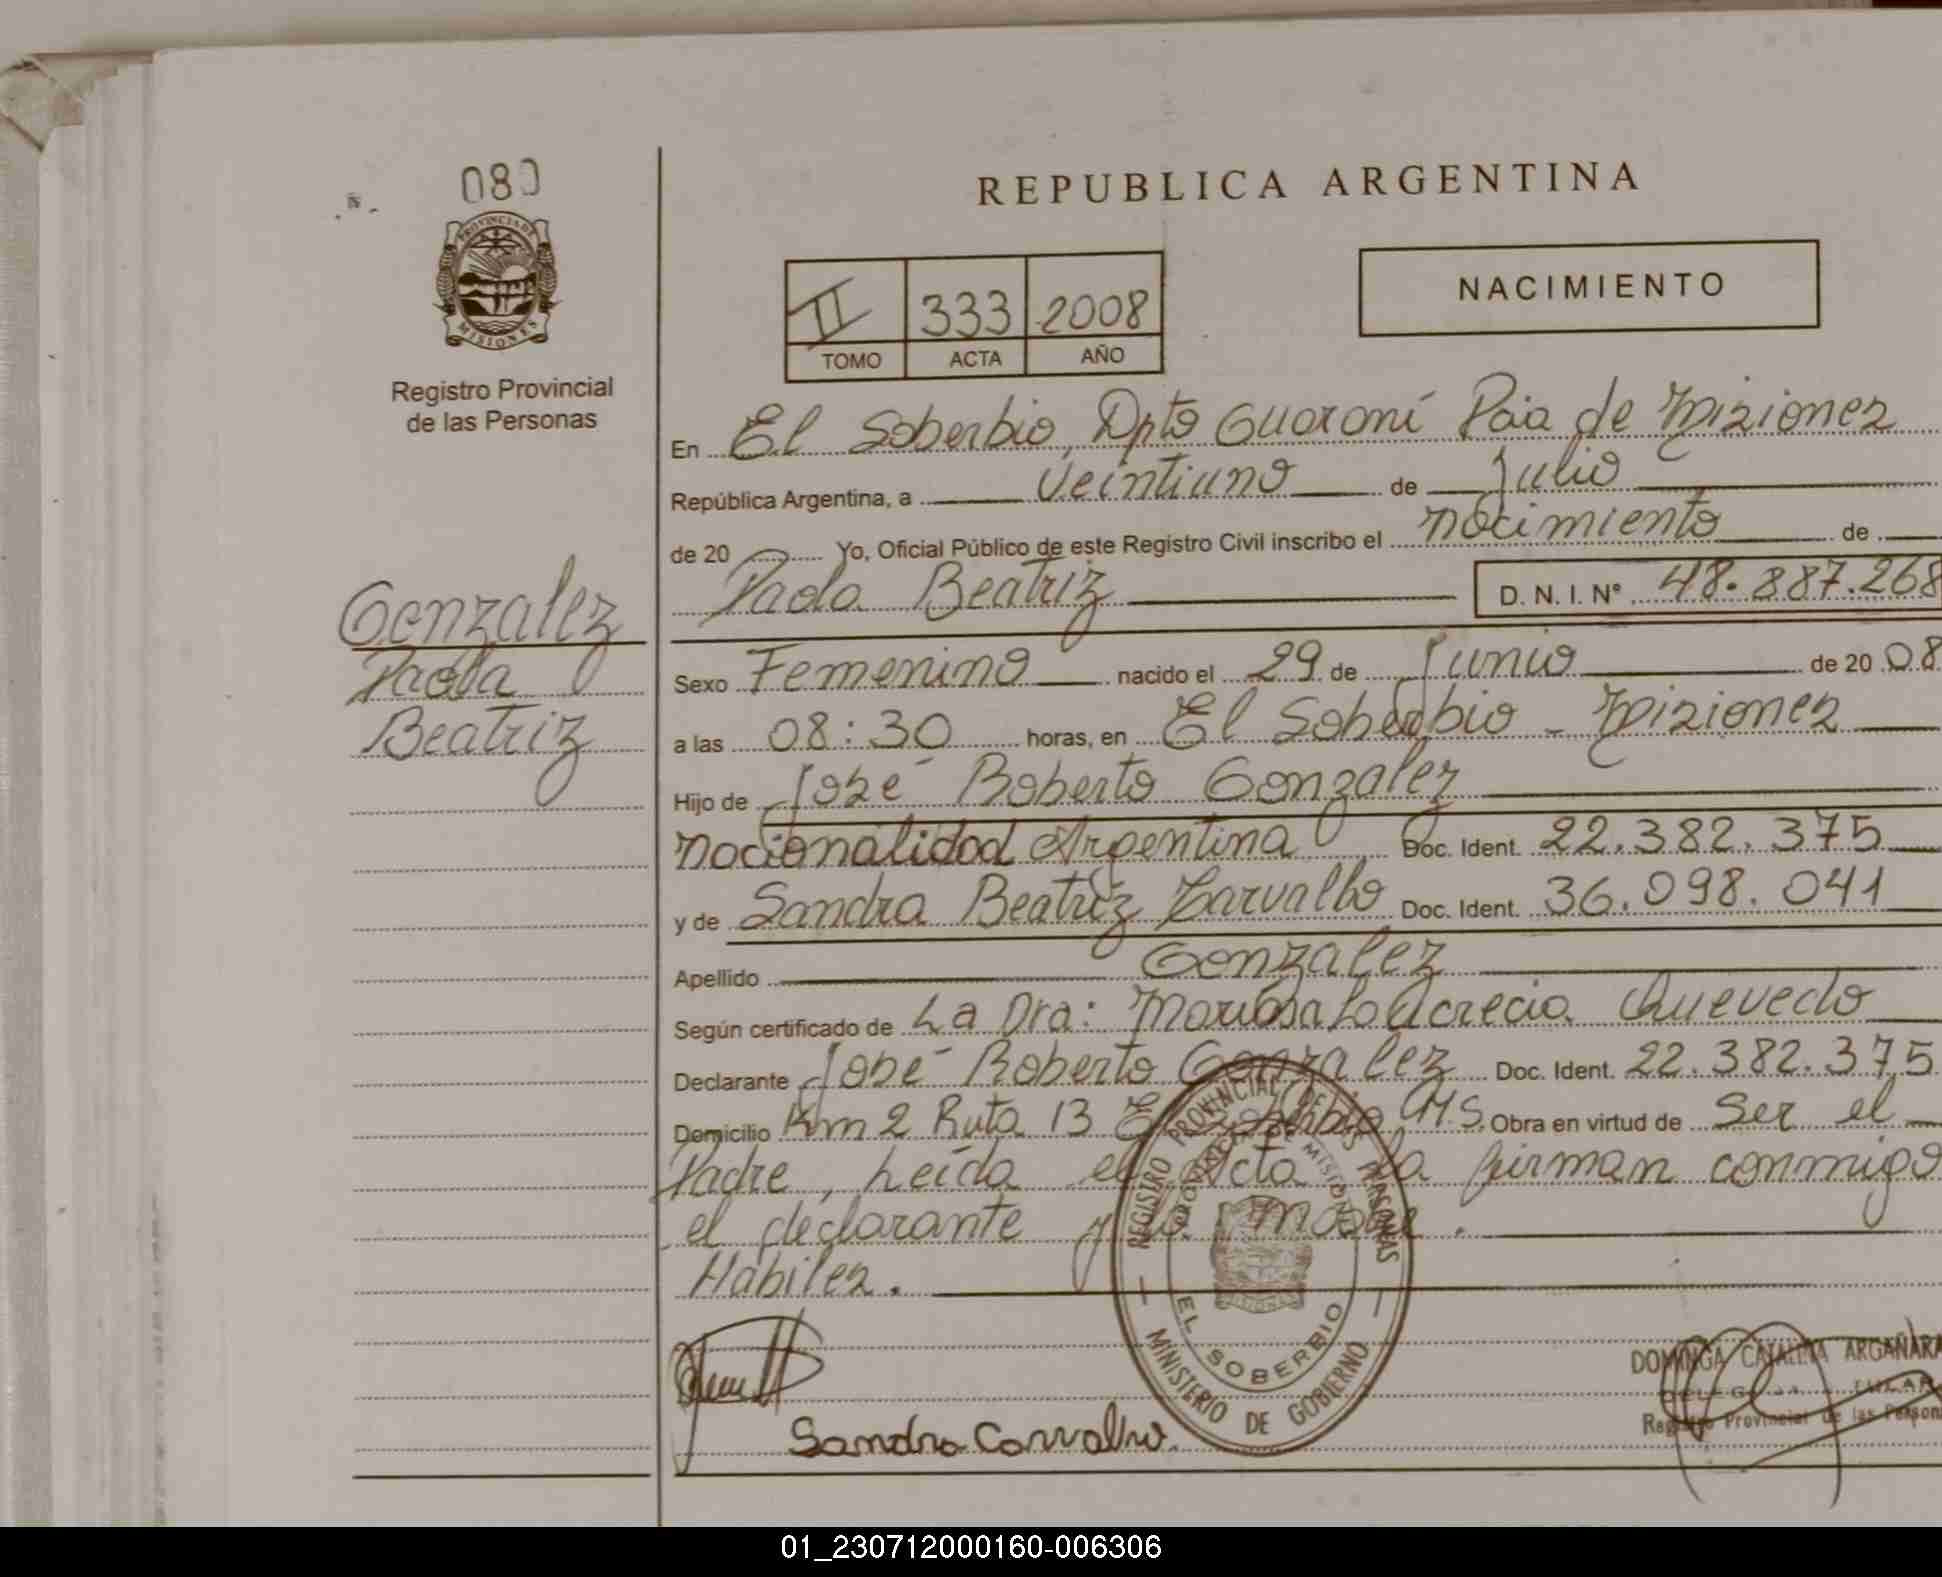 080
PROVINCIA DE
MISIONES
Registro Provincial
de las Personas
REPUBLICA ARGENTINA
II 333 2008
TOMO ACTA AÑO
NACIMIENTO
En El Soberbio, Dpto Guaraní Pcia de Misiones
República Argentina, a Veintiuno de Julio
de 20 Yo, Oficial Público de este Registro Civil inscribo el nacimiento de
Paola Beatriz D. N. I. Nº 48.887.268
Gonzalez
Paola
Beatriz
Sexo Femenino nacido el 29 de Junio de 20 08
a las 08:30 horas, en El Soberbio - Misiones
Hijo de José Roberto Gonzalez
nacionalidad Argentina Doc. Ident. 22.382.375
y de Sandra Beatriz Carvallo Doc. Ident. 36.098.041
Apellido Gonzalez
Según certificado de La Dra: Quevedo
Declarante José Roberto Gonzalez Doc. Ident. 22.382.375
Domicilio Km 2 Ruta 13 El Soberbio, M.S. Obra en virtud de Ser el
Padre, Leída el Acta la firman conmigo
el declarante y la madre.
Hábiles.
REGISTRO PROVINCIAL DE LAS PERSONAS
PROVINCIA DE MISIONES
EL SOBERBIO
MINISTERIO DE GOBIERNO
Sandra Carvallo
DOMINGA CATALINA ARGAÑARA
Registro Provincial de las Person
01_230712000160-006306